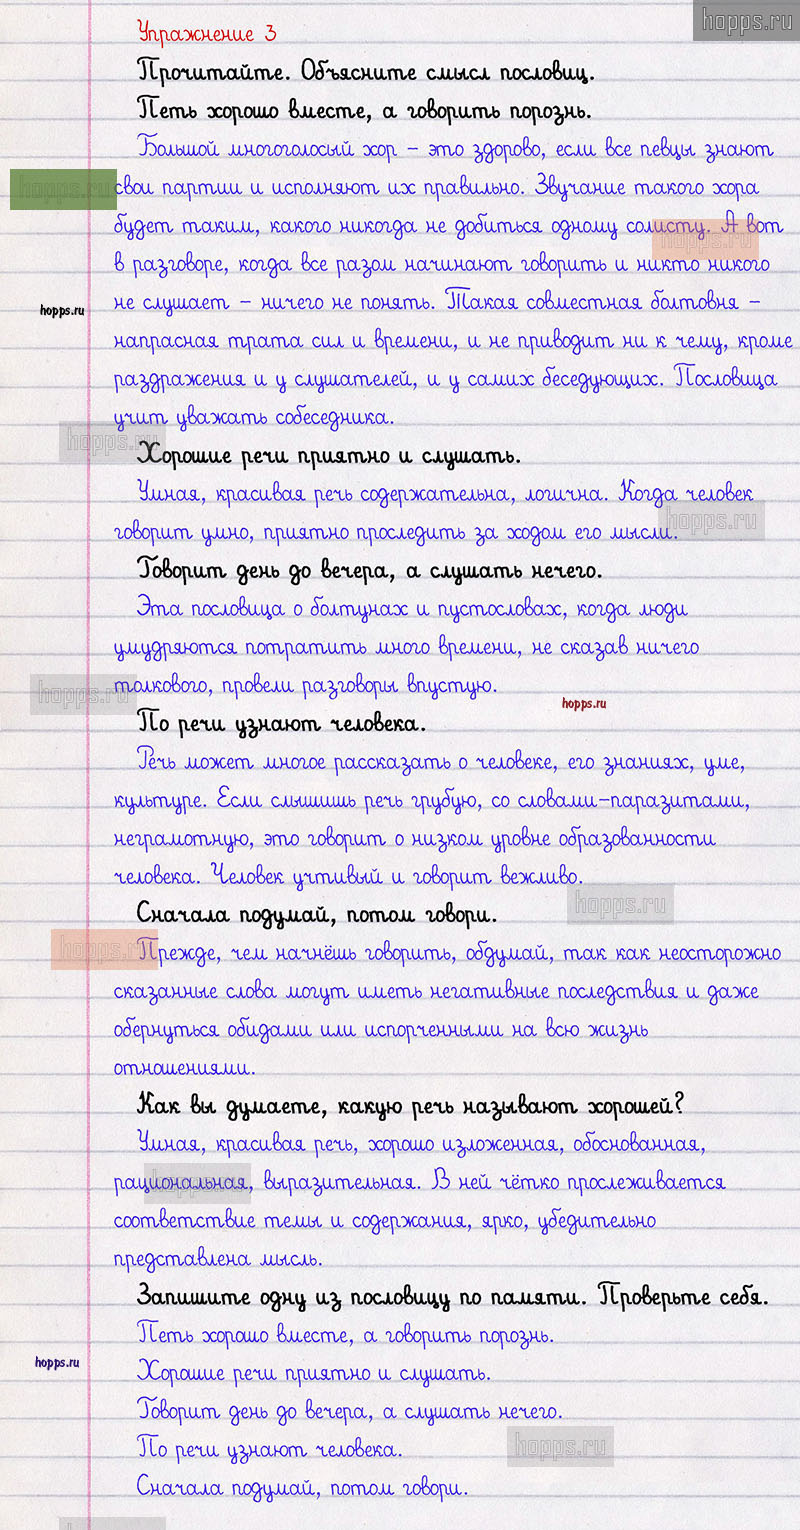 hopps.ru
Упражнение 3
Прочитайте. Объясните смысл пословиц.
Петь хорошо вместе, а говорить порознь.
Большой многоголосый хор – это здорово, если все певцы знают
hopps.ru
свои партии и исполняют их правильно. Звучание такого хора
будет таким, какого никогда не добиться одному солисту. А вот
hopps.ru
в разговоре, когда все разом начинают говорить и никто никого
не слушает – ничего не понять. Такая совместная болтовня –
hopps.ru
напрасная трата сил и времени, и не приводит ни к чему, кроме
раздражения и у слушателей, и у самих беседующих. Пословица
учит уважать собеседника.
hopps.ru
Хорошие речи приятно и слушать.
Умная, красивая речь содержательна, логична. Когда человек
hopps.ru
говорит умно, приятно проследить за ходом его мысли.
Говорит день до вечера, а слушать нечего.
Эта пословица о болтунах и пустословах, когда люди
умудряются потратить много времени, не сказав ничего
толкового, провели разговоры впустую.
hopps.ru
hopps.ru
По речи узнают человека.
Речь может многое рассказать о человеке, его знаниях, уме,
культуре. Если слышишь речь грубую, со словами-паразитами,
неграмотную, это говорит о низком уровне образованности
человека. Человек учтивый и говорит вежливо.
hopps.ru
Сначала подумай, потом говори.
hopps.ru
Прежде, чем начнёшь говорить, обдумай, так как неосторожно
сказанные слова могут иметь негативные последствия и даже
обернуться обидами или испорченными на всю жизнь
отношениями.
Как вы думаете, какую речь называют хорошей?
Умная, красивая речь, хорошо изложенная, обоснованная,
рациональная, выразительная. В ней чётко прослеживается
hopps.ru
соответствие темы и содержания, ярко, убедительно
представлена мысль.
Запишите одну из пословицу по памяти. Проверьте себя.
Петь хорошо вместе, а говорить порознь.
hopps.ru
Хорошие речи приятно и слушать.
Говорит день до вечера, а слушать нечего.
По речи узнают человека.
hopps.ru
Сначала подумай, потом говори.